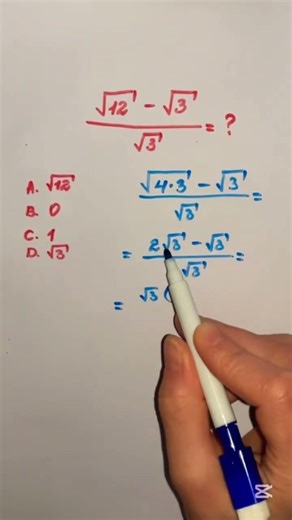 (√12 - √3) / √3 = ?
A. √12
B. 0
C. 1
D. √3
(√(4·3) - √3) / √3 =
= (2√3 - √3) / √3 =
= √3 (